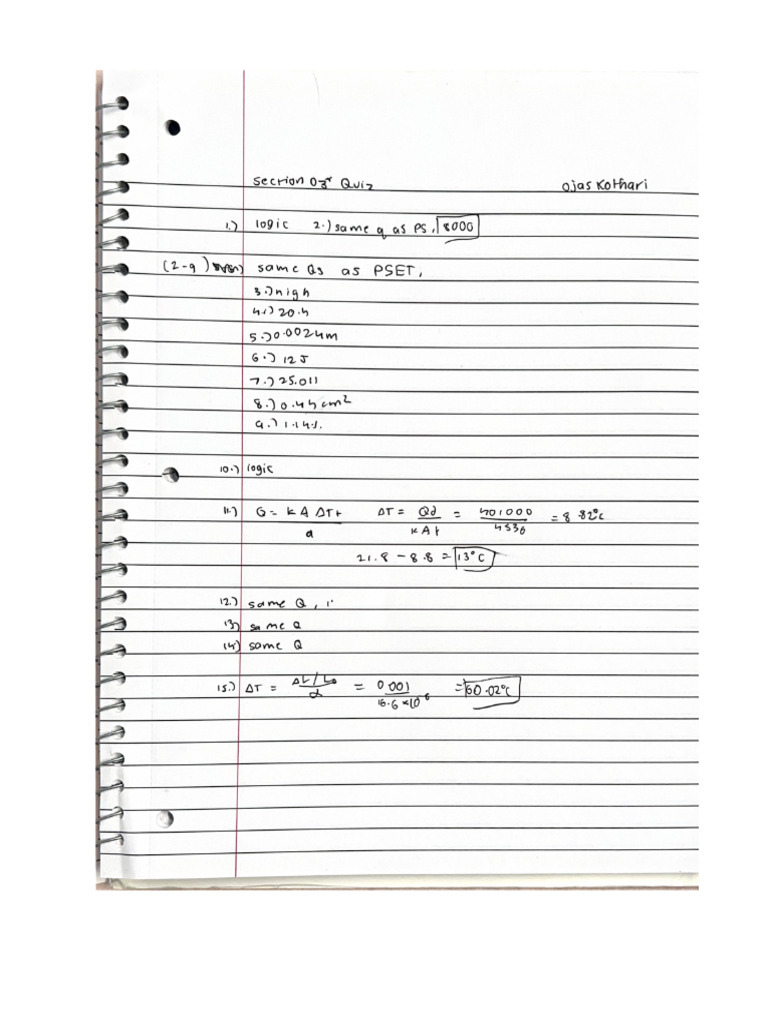 Section 03 Quiz Ojas Kothari
1.) logic 2.) same q as PS, 8000
(2-9) same Qs as PSET,
3.) high
4.) 20.4
5.) 0.0024m
6.) 12J
7.) 25.011
8.) 0.44cm²
9.) 1.14%
10.) logic
11.) Q = kAΔTt / d ΔT = Qd / kAt = 401000 / 4536 = 8.82°C
21.8 - 8.8 = 13°C
12.) same Q,
13.) same Q
14.) same Q
15.) ΔT = ΔL/L₀ / α = 0.001 / 16.6×10⁻⁶ = 60.02°C